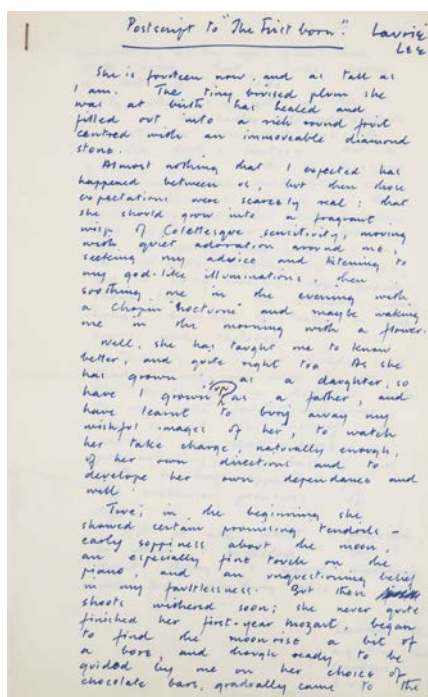 Postscript to "The First born". Laurie
Lee
She is fourteen now, and as tall as
I am. The tiny bruised plum she
was at birth has healed and
filled out into a rich round fruit
centred with an immoveable diamond
stone.
Almost nothing that I expected has
happened between us, but then those
expectations were scarcely real: that
she should grow into a fragrant
wisp of Colettesque sensitivity, moving
with quiet adoration around me,
seeking my advice and listening to
my god-like illuminations, then
soothing me in the evening with
a Chopin "Nocturne" and maybe waking
me in the morning with a flower.
Well, she has taught me to know
better, and quite right too. As she
has grown up as a daughter, so
have I grown as a father, and
have learnt to bury away my
wishful images of her; to watch
her take charge, naturally enough,
of her own directions and to
develope her own dependance and
will.
True; in the beginning she
showed certain promising tendrils –
early soppiness about the moon,
an especially fine touch on the
piano, and an unquestioning belief
in my faultlessness. But then
shoots withered soon; she never quite
finished her first-year Mozart, began
to find the moonrise a bit of
a bore, and though ready to be
guided by me on her choice of
chocolate bars, gradually came to the